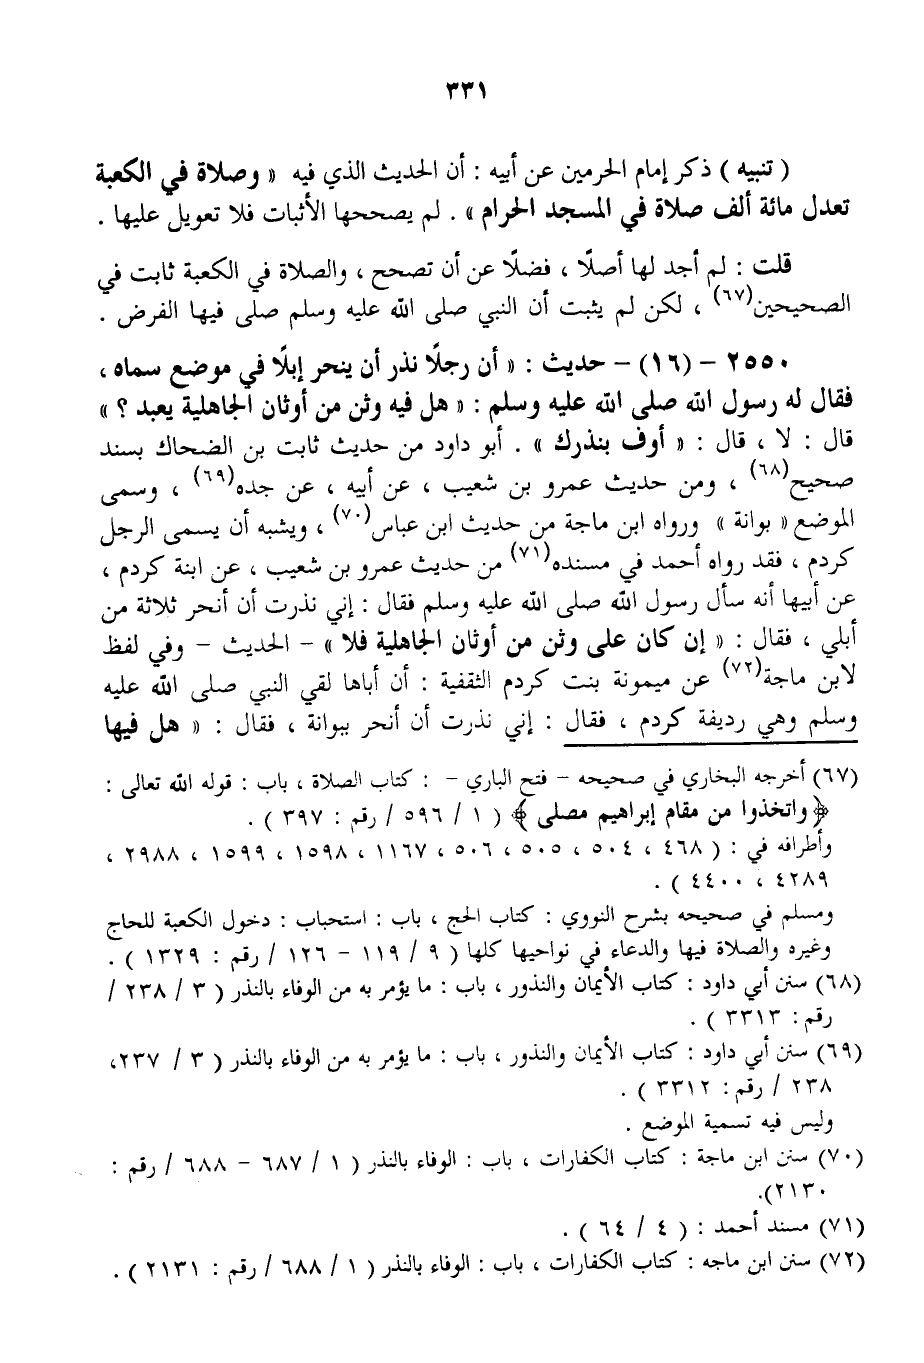 ٣٣١
( تنبيه ) ذكر إمام الحرمين عن أبيه : أن الحديث الذي فيه « وصلاة في الكعبة
تعدل مائة ألف صلاة في المسجد الحرام » . لم يصححها الأثبات فلا تعويل عليها .
قلت : لم أجد لها أصلًا ، فضلًا عن أن تصحح ، والصلاة في الكعبة ثابت في
الصحيحين(٦٧) ، لكن لم يثبت أن النبي صلى الله عليه وسلم صلى فيها الفرض .
٢٥٥٠ – (١٦) – حديث : « أن رجلًا نذر أن ينحر إبلًا في موضع سماه ،
فقال له رسول الله صلى الله عليه وسلم : « هل فيه وثن من أوثان الجاهلية يعبد ؟ »
قال : لا ، قال : « أوف بنذرك » . أبو داود من حديث ثابت بن الضحاك بسند
صحيح(٦٨) ، ومن حديث عمرو بن شعيب ، عن أبيه ، عن جده(٦٩) ، وسمى
الموضع « بوانة » ورواه ابن ماجة من حديث ابن عباس(٧٠) ، ويشبه أن يسمى الرجل
كردم ، فقد رواه أحمد في مسنده(٧١) من حديث عمرو بن شعيب ، عن ابنة كردم ،
عن أبيها أنه سأل رسول الله صلى الله عليه وسلم فقال : إني نذرت أن أنحر ثلاثة من
أبلي ، فقال : « إن كان على وثن من أوثان الجاهلية فلا » – الحديث – وفي لفظ
لابن ماجة(٧٢) عن ميمونة بنت كردم الثقفية : أن أباها لقي النبي صلى الله عليه
وسلم وهي رديفة كردم ، فقال : إني نذرت أن أنحر ببوانة ، فقال : « هل فيها
(٦٧) أخرجه البخاري في صحيحه – فتح الباري – : كتاب الصلاة ، باب : قوله الله تعالى :
﴿واتخذوا من مقام إبراهيم مصلى﴾ ( ١ / ٥٩٦ / رقم : ٣٩٧ ) .
وأطرافه في : ( ٤٦٨ ، ٥٠٤ ، ٥٠٥ ، ٥٠٦ ، ١١٦٧ ، ١٥٩٨ ، ١٥٩٩ ، ٢٩٨٨ ،
٤٢٨٩ ، ٤٤٠٠ ) .
ومسلم في صحيحه بشرح النووي : كتاب الحج ، باب : استحباب : دخول الكعبة للحاج
وغيره والصلاة فيها والدعاء في نواحيها كلها ( ٩ / ١١٩ – ١٢٦ / رقم : ١٣٢٩ ) .
(٦٨) سنن أبي داود : كتاب الأيمان والنذور ، باب : ما يؤمر به من الوفاء بالنذر ( ٣ / ٢٣٨ /
رقم : ٣٣١٣ ) .
(٦٩) سنن أبي داود : كتاب الأيمان والنذور ، باب : ما يؤمر به من الوفاء بالنذر ( ٣ / ٢٣٧،
٢٣٨ / رقم : ٣٣١٢ ) .
وليس فيه تسمية الموضع .
(٧٠) سنن ابن ماجة : كتاب الكفارات ، باب : الوفاء بالنذر ( ١ / ٦٨٧ – ٦٨٨ / رقم :
٢١٣٠).
(٧١) مسند أحمد : ( ٤ / ٦٤ ) .
(٧٢) سنن ابن ماجه : كتاب الكفارات ، باب : الوفاء بالنذر ( ١ / ٦٨٨ / رقم : ٢١٣١ ) .